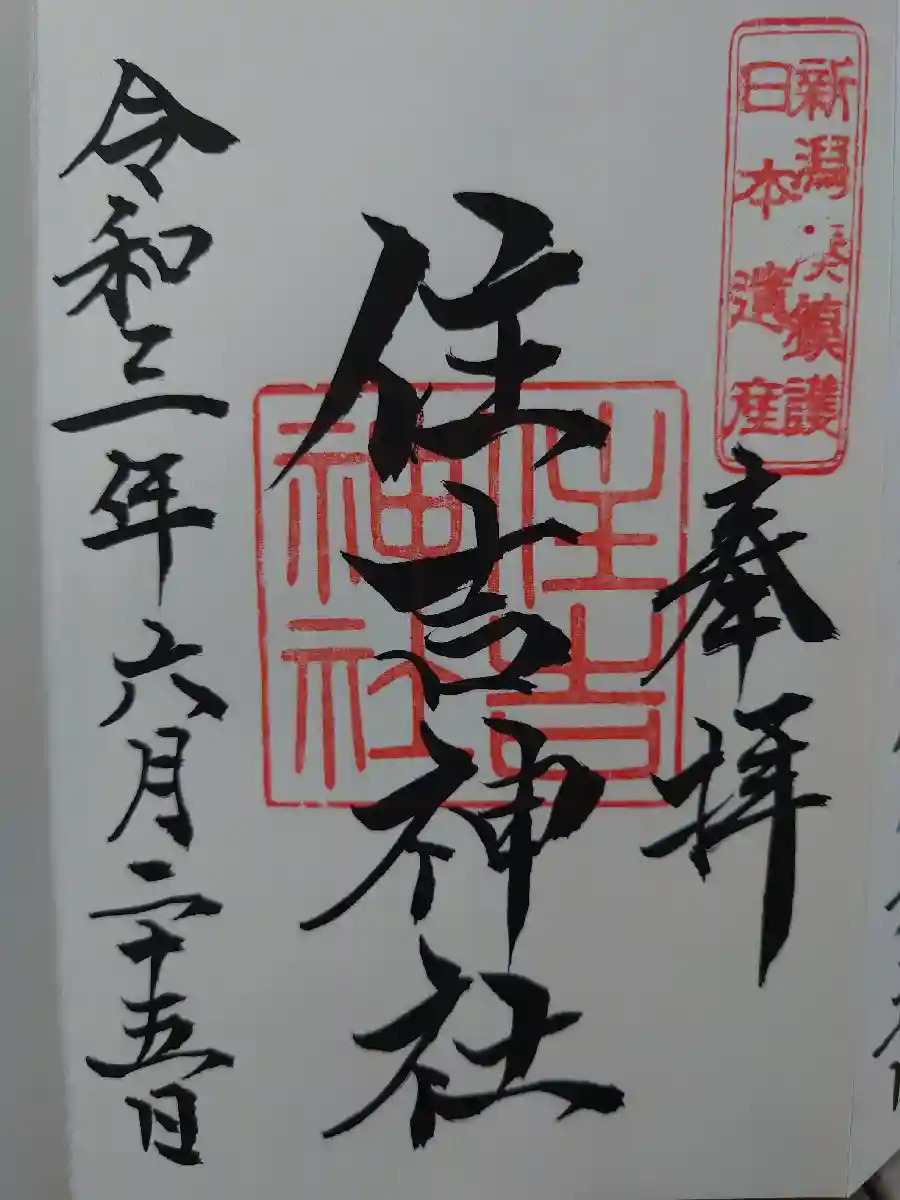 新潟・湊鎮護
日本遺産
奉拝
住吉神社
住吉
神社
令和三年六月二十五日